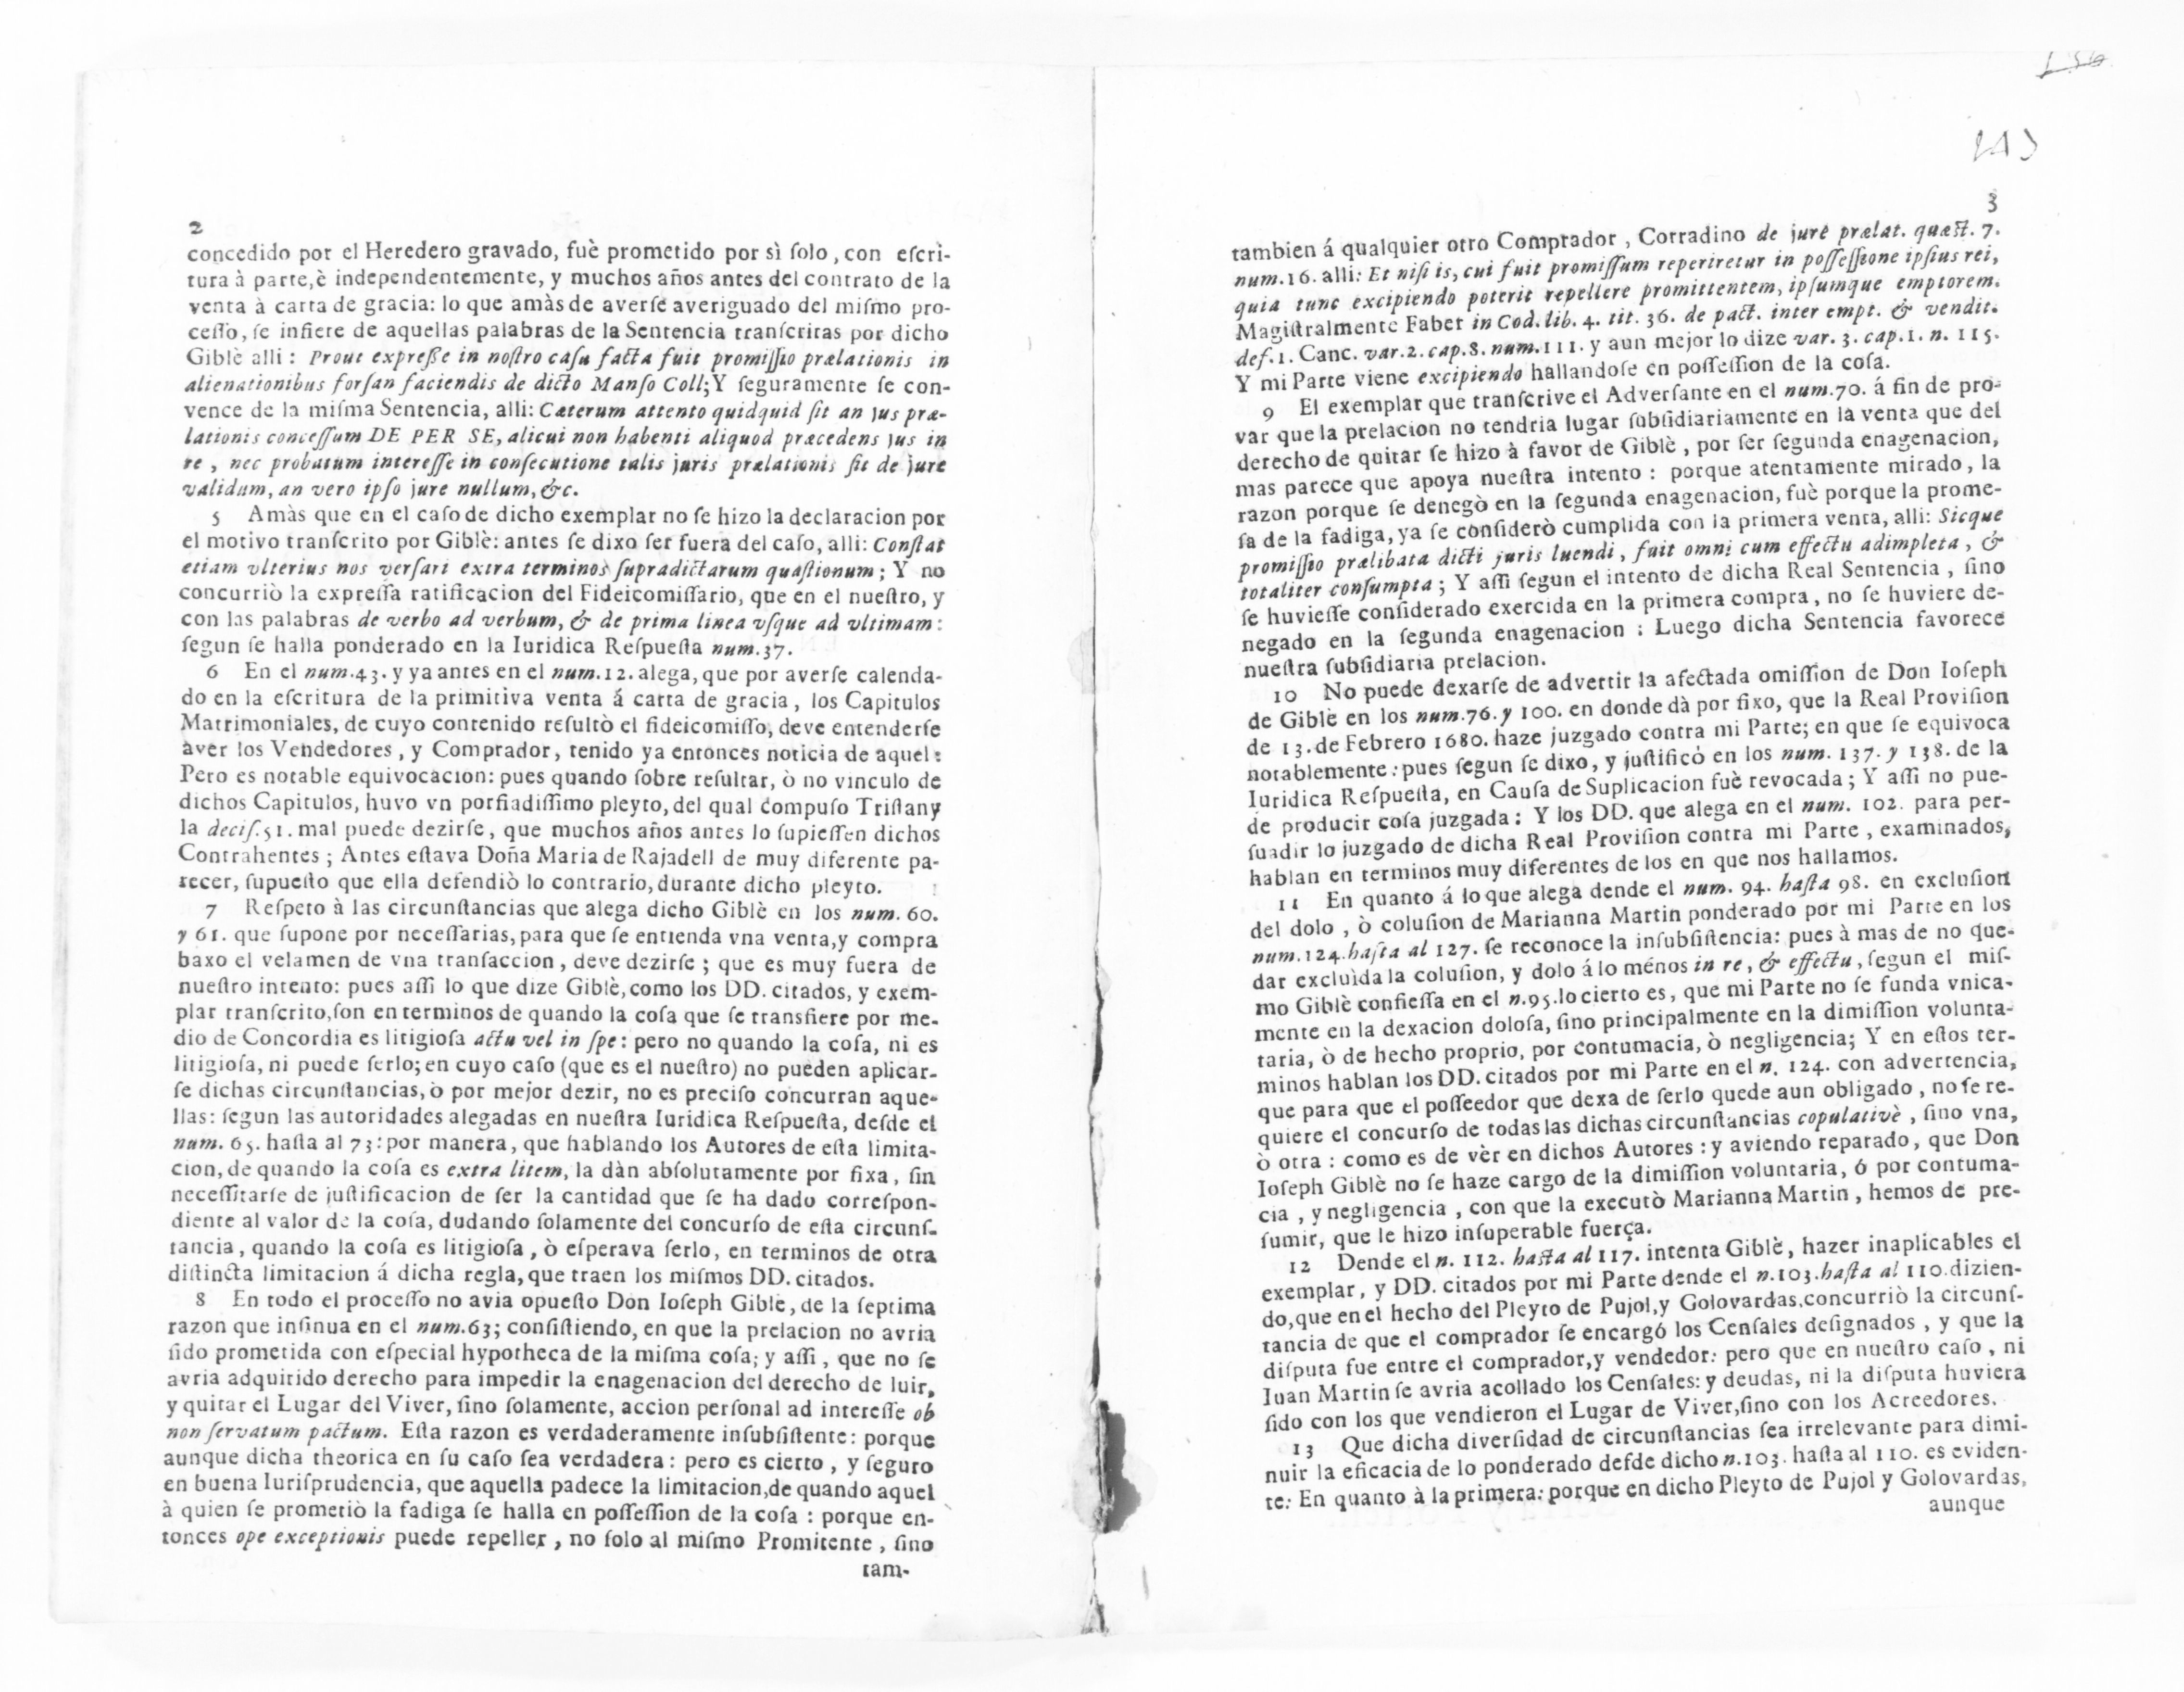 2
concedido por el Heredero gravado, fuè prometido por sì ſolo, con eſcri-
tura à parte, è independentemente, y muchos años antes del contrato de la
venta à carta de gracia: lo que amàs de averſe averiguado del miſmo pro-
ceſſo, ſe infiere de aquellas palabras de la Sentencia tranſcritas por dicho
Giblè alli : Prout expreſſe in noſtro caſu facta fuit promiſſio prælationis in
alienationibus forſan faciendis de dicto Manſo Coll; Y ſeguramente ſe con-
vence de la miſma Sentencia, alli: Cæterum attento quidquid ſit an jus præ-
lationis conceſſum DE PER SE, alicui non habenti aliquod præcedens jus in
re , nec probatum intereſſe in conſecutione talis juris prælationis ſit de jure
validum, an vero ipſo jure nullum, &c.
5 Amàs que en el caſo de dicho exemplar no ſe hizo la declaracion por
el motivo tranſcrito por Giblè: antes ſe dixo ſer fuera del caſo, alli: Conſtat
etiam vlterius nos verſari extra terminos ſupradictarum quæſtionum; Y no
concurriò la expreſſa ratificacion del Fideicomiſſario, que en el nueſtro, y
con las palabras de verbo ad verbum, & de prima linea vſque ad vltimam:
ſegun ſe halla ponderado en la Iuridica Reſpueſta num.37.
6 En el num.43. y ya antes en el num.12. alega, que por averſe calenda-
do en la eſcritura de la primitiva venta á carta de gracia, los Capitulos
Matrimoniales, de cuyo contenido reſultò el fideicomiſſo, deve entenderſe
aver los Vendedores , y Comprador, tenido ya entonces noticia de aquel:
Pero es notable equivocacion: pues quando ſobre reſultar, ò no vinculo de
dichos Capitulos, huvo vn porfiadiſſimo pleyto, del qual compuſo Triſtany
la deciſ.51. mal puede dezirſe, que muchos años antes lo ſupieſſen dichos
Contrahentes ; Antes eſtava Doña Maria de Rajadell de muy diferente pa-
recer, ſupueſto que ella defendiò lo contrario, durante dicho pleyto.
7 Reſpeto à las circunſtancias que alega dicho Giblè en los num. 60.
y 61. que ſupone por neceſſarias, para que ſe entienda vna venta, y compra
baxo el velamen de vna tranſaccion, deve dezirſe ; que es muy fuera de
nueſtro intento: pues aſſi lo que dize Giblè, como los DD. citados, y exem-
plar tranſcrito, ſon en terminos de quando la coſa que ſe transfiere por me-
dio de Concordia es litigioſa actu vel in ſpe: pero no quando la coſa, ni es
litigioſa, ni puede ſerlo; en cuyo caſo (que es el nueſtro) no pueden aplicar-
ſe dichas circunſtancias, ò por mejor dezir, no es preciſo concurran aque-
llas: ſegun las autoridades alegadas en nueſtra Iuridica Reſpueſta, deſde el
num. 65. haſta al 73: por manera, que hablando los Autores de eſta limita-
cion, de quando la coſa es extra litem, la dàn abſolutamente por fixa, ſin
neceſſitarſe de juſtificacion de ſer la cantidad que ſe ha dado correſpon-
diente al valor de la coſa, dudando ſolamente del concurſo de eſta circunſ-
tancia, quando la coſa es litigioſa, ò eſperava ſerlo, en terminos de otra
diſtincta limitacion á dicha regla, que traen los miſmos DD. citados.
8 En todo el proceſſo no avia opueſto Don Ioſeph Giblè, de la ſeptima
razon que inſinua en el num.63; conſiſtiendo, en que la prelacion no avria
ſido prometida con eſpecial hypotheca de la miſma coſa; y aſſi, que no ſe
avria adquirido derecho para impedir la enagenacion del derecho de luir,
y quitar el Lugar del Viver, ſino ſolamente, accion perſonal ad intereſſe ob
non ſervatum pactum. Eſta razon es verdaderamente inſubſiſtente: porque
aunque dicha theorica en ſu caſo ſea verdadera: pero es cierto , y ſeguro
en buena Iuriſprudencia, que aquella padece la limitacion, de quando aquel
à quien ſe prometiò la fadiga ſe halla en poſſeſſion de la coſa : porque en-
tonces ope exceptionis puede repeller , no ſolo al miſmo Promitente , ſino
tam-
143
3
tambien á qualquier otro Comprador , Corradino de jure prælat. quæſt. 7.
num.16. alli: Et niſi is, cui fuit promiſſum reperiretur in poſſeſſione ipſius rei,
quia tunc excipiendo poterit repellere promittentem, ipſumque emptorem.
Magiſtralmente Faber in Cod. lib. 4. tit. 36. de pact. inter empt. & vendit.
def.1. Canc. var.2. cap.8. num.111. y aun mejor lo dize var. 3. cap.1. n. 115.
Y mi Parte viene excipiendo hallandoſe en poſſeſſion de la coſa.
9 El exemplar que tranſcrive el Adverſante en el num.70. á fin de pro-
var que la prelacion no tendria lugar ſubſidiariamente en la venta que del
derecho de quitar ſe hizo à favor de Giblè , por ſer ſegunda enagenacion,
mas parece que apoya nueſtra intento : porque atentamente mirado, la
razon porque ſe denegò en la ſegunda enagenacion, fuè porque la prome-
ſa de la fadiga, ya ſe conſiderò cumplida con la primera venta, alli: Sicque
promiſſio prælibata dicti juris luendi, fuit omni cum effectu adimpleta, &
totaliter conſumpta ; Y aſſi ſegun el intento de dicha Real Sentencia , ſino
ſe huvieſſe conſiderado exercida en la primera compra, no ſe huviere de-
negado en la ſegunda enagenacion : Luego dicha Sentencia favorece
nueſtra ſubſidiaria prelacion.
10 No puede dexarſe de advertir la afectada omiſſion de Don Ioſeph
de Giblè en los num.76. y 100. en donde dà por fixo, que la Real Proviſion
de 13. de Febrero 1680. haze juzgado contra mi Parte; en que ſe equivoca
notablemente: pues ſegun ſe dixo, y juſtificó en los num. 137. y 138. de la
Iuridica Reſpueſta, en Cauſa de Suplicacion fuè revocada ; Y aſſi no pue-
de producir coſa juzgada: Y los DD. que alega en el num. 102. para per-
ſuadir lo juzgado de dicha Real Proviſion contra mi Parte , examinados,
hablan en terminos muy diferentes de los en que nos hallamos.
11 En quanto á lo que alega dende el num. 94. haſta 98. en excluſion
del dolo , ò coluſion de Marianna Martin ponderado por mi Parte en los
num.124. haſta al 127. ſe reconoce la inſubſiſtencia: pues à mas de no que-
dar excluìda la coluſion, y dolo á lo ménos in re , & effectu, ſegun el miſ-
mo Giblè confieſſa en el n.95. lo cierto es, que mi Parte no ſe funda vnica-
mente en la dexacion doloſa, ſino principalmente en la dimiſſion volunta-
taria, ò de hecho proprio, por contumacia, ò negligencia; Y en eſtos ter-
minos hablan los DD. citados por mi Parte en el n. 124. con advertencia,
que para que el poſſeedor que dexa de ſerlo quede aun obligado , no ſe re-
quiere el concurſo de todas las dichas circunſtancias copulativè , ſino vna,
ò otra : como es de vèr en dichos Autores : y aviendo reparado, que Don
Ioſeph Giblè no ſe haze cargo de la dimiſſion voluntaria, ó por contuma-
cia , y negligencia , con que la executò Marianna Martin , hemos de pre-
ſumir, que le hizo inſuperable fuerça.
12 Dende el n. 112. haſta al 117. intenta Giblè, hazer inaplicables el
exemplar, y DD. citados por mi Parte dende el n.103. haſta al 110. dizien-
do, que en el hecho del Pleyto de Pujol, y Golovardas, concurriò la circunſ-
tancia de que el comprador ſe encargó los Cenſales deſignados , y que la
diſputa fue entre el comprador, y vendedor: pero que en nueſtro caſo , ni
Iuan Martin ſe avria acollado los Cenſales: y deudas, ni la diſputa huviera
ſido con los que vendieron el Lugar de Viver, ſino con los Acreedores.
13 Que dicha diverſidad de circunſtancias ſea irrelevante para dimi-
nuir la eficacia de lo ponderado deſde dicho n.103. haſta al 110. es eviden-
te: En quanto à la primera: porque en dicho Pleyto de Pujol y Golovardas,
aunque